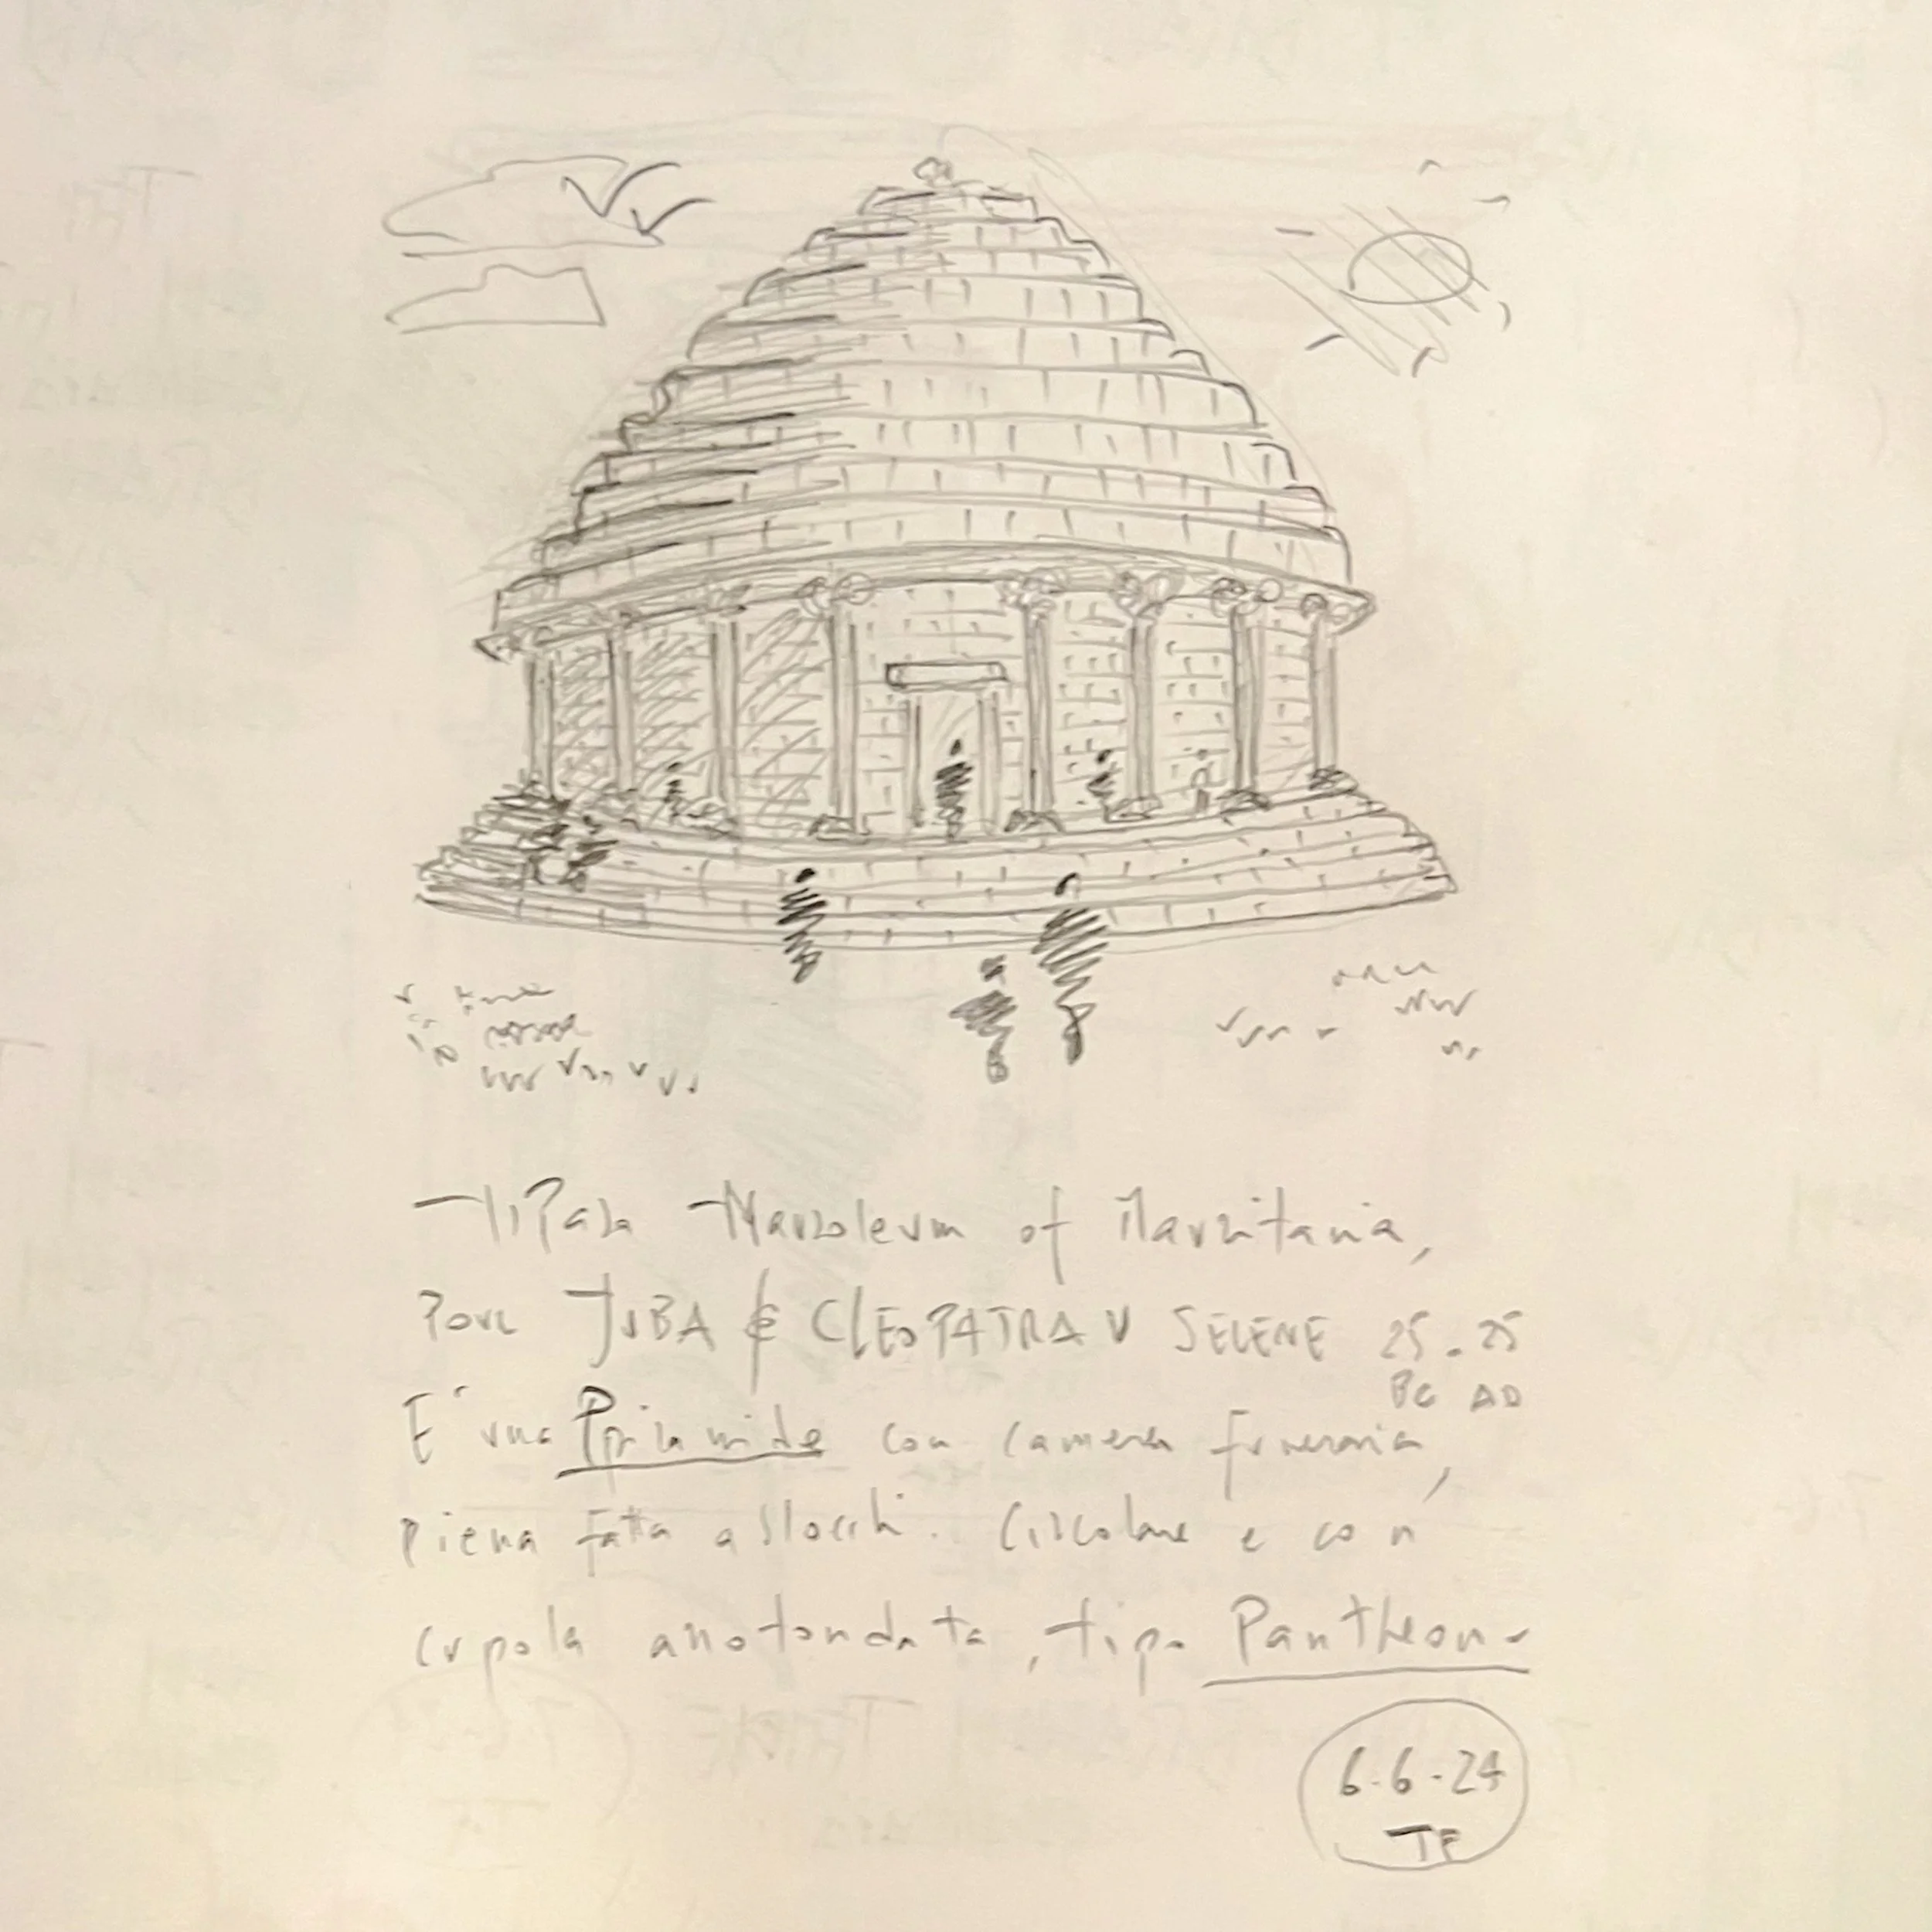 TiPaza Mausoleum of Mauritania,
JUBA & CLEOPATRA V SELENE 25 - 25
BC AD
E' una Piramide con camera funeraria,
piena fatta a blocchi. Circolare e con
cupola arrotondata, tipo Pantheon
6.6.24
TF